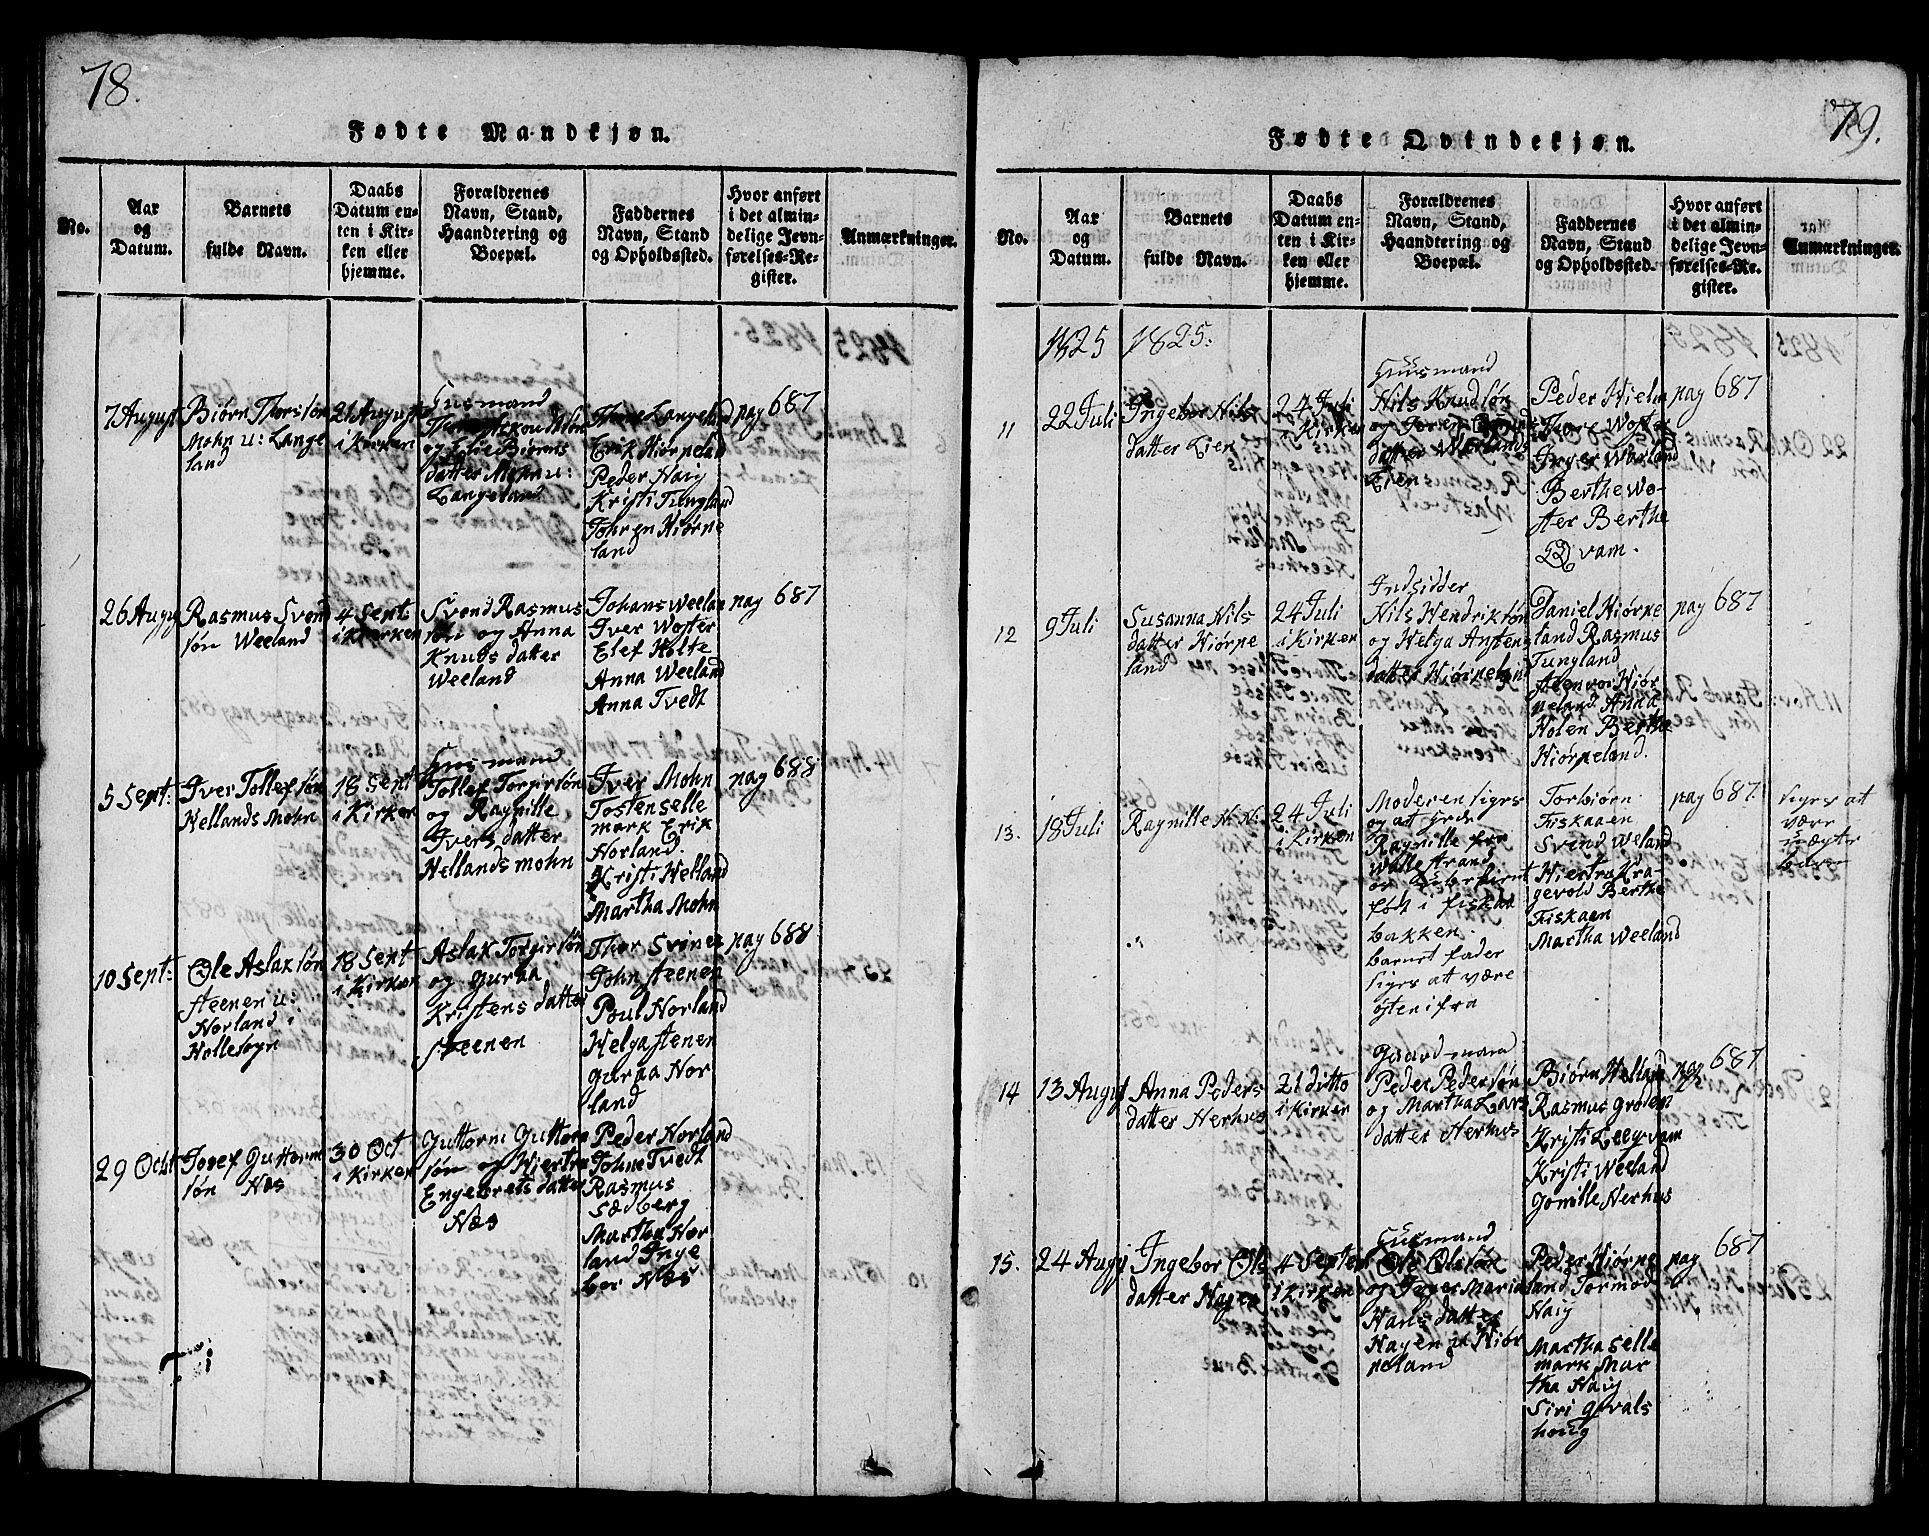 78.
Fødte Mandkjøn.
No.
Aar
og
Datum.
Barnets
fulde Navn.
Daabs
Datum en-
ten i Kir-
ken eller
hjemme.
Forældrenes
Navn, Stand,
Haandtering og
Boepæl.
Faddernes
Navn, Stand
og Opholdssted.
Hvor anført
i det almin-
delige Jevn-
førelses-Re-
gister.
Anmærkninger.
7 August
Biørn Thorsson
Mohn u: Lange
land
21 August
i kirken
Huusmand
og Elie Biørns
datter Mohn u:
Langeland
Thore Langeland
Erik Hiørpeland
Peder Haig
Kristi Tungland
Tohren Hiørpe
land
pag 687
26 Augu
Rasmus Svend
søn Weeland
4 Sept:
i Kirken
Svend Rasmus
søn og Anna
Knuds datter
Weeland
Johans Weelan
Iver Woster
Elef Holte
Anna Weeland
Anna Tvedt
pag 687
5 Sept:
Iver Tollefsøn
Hellands Mohn
18 Sept
i Kirken
Huusmand
Tollef Torgirsøn
og Ragnille
Ivers datter
Hellands mohn
Iver Mohn
Tosten Selle
mark Erik
Norland.
Kristi Helland
Martha Mohn
pag 688
10 Sept:
Ole Aslaksøn
Steenen u:
Norland i
Hollesogn
18 Sept
i Kirken
Aslak Torgirsøn
og Guraa
Kristens datter
Steenen
Thor Svines
John Steenen
Poul Norland
Helga Stenen
Guraa Nor
land
pag 688
29 Octb
Josef Guttorm
søn Næs
30 Oct
i Kirken
Guttorm Guttorm
søn og Hiertru
Engebrets datter
Næs
Peder Norland
Johne Tvedt
Rasmus
Sædberg
Martha Nor
land Inge
bor Næs
79.
Fødte Qvindekjøn.
No.
Aar
og
Datum.
Barnets
fulde Navn.
Daabs
Datum en-
ten i Kir-
ken eller
hjemme.
Forældrenes
Navn, Stand,
Haandtering og
Boepæl.
Faddernes
Navn, Stand
og Opholdssted.
Hvor anført
i det almin-
delige Jevn-
førelses-Re-
gister.
Anmærkninger.
1825
1825.
11
22 Juli
Ingebor Nils
datter Eien
24 Juli
i Kirken
Huusmand
Nils Knudsøn
datter Wærland
Eien
Peder Hielm
Ivare Woster
Inger Warland
Berthe Wo-
ster Berthe
Qvam.
pag 687
12
9 Juli
Susanna Nils
datter Hiørpe
land
24 Juli
i Kirken
Indsidder
Nils Hendriksøn
og Helga Anstens
datter Hiørpeland
Daniel Hiørpe
land Rasmus
Tungland
Steenvor Hiør
peland Anna
Holen Berthe
Hiørpeland.
pag 687
13.
18 Juli
Ragnille N: N:
24 Juli
i Kirken
Moderen sigrs
Ragnille
født i Fiskaa
bakken.
barnet fader
sigrs at være
østenifra
Torbiørn
Fiskaaen
Svend Weland
Hiertru Kra-
gevold Berthe
Fiskaen
Martha Weeland
pag 687.
sigrs at
være
uægte
14
13 August
Anna Peders
datter Nerhus
21 ditto
i Kirken
Gaardmand
Peder Pedersøn
og Martha Lars
datter Nerhus
Biørn Helland
Rasmus Groden
Kristi Leeqvam
Kristi Weeland
Jonille Nerhus
pag 687
15.
24 Augu
Ingebor Ols
datter Hagen
4 Septer
i Kirken
Huusmand
Ole Olssøn
og Inger Maria
Hans datter
Hagen u: Hiør
peland
Peder Hiørpe
land Tormod
Haig
Martha Selle
mark Mar
tha Haig
Siri Govals
houg
pag 687